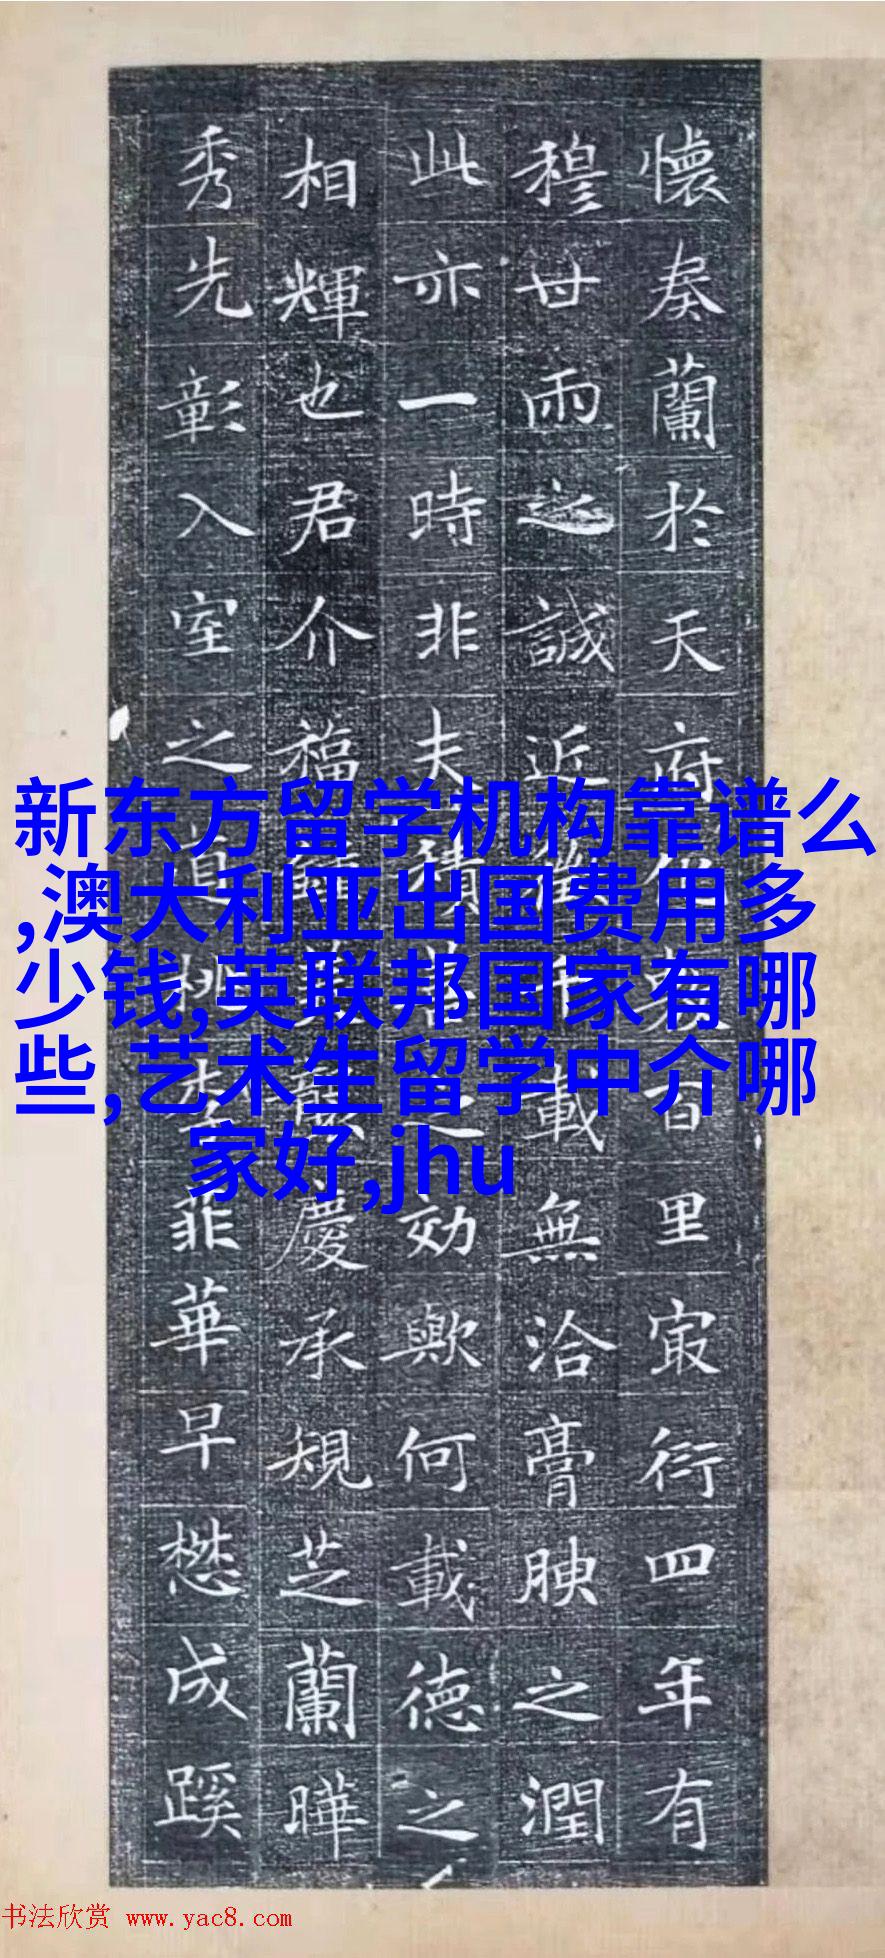 懷奏蘭於天府百里㝡衍四年有
穆世雨之誠近載無洽膏腴之潤
此亦一時非夫積之効歟何載德之
相輝也君介福慶承規芝蘭曄
秀先彰入室之桃李菲華早懋成蹊
新东方留学机构靠谱么
,澳大利亚出国费用多
少钱,英联邦国家有哪
些,艺术生留学中介哪
家好,jhu
书法欣赏 www.yac8.com